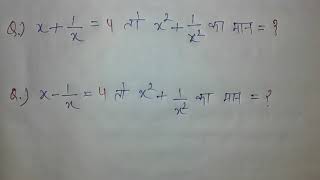 Q.) x + 1/x = 4 तो x² + 1/x² का मान = ?
Q.) x - 1/x = 4 तो x² + 1/x² का मान = ?